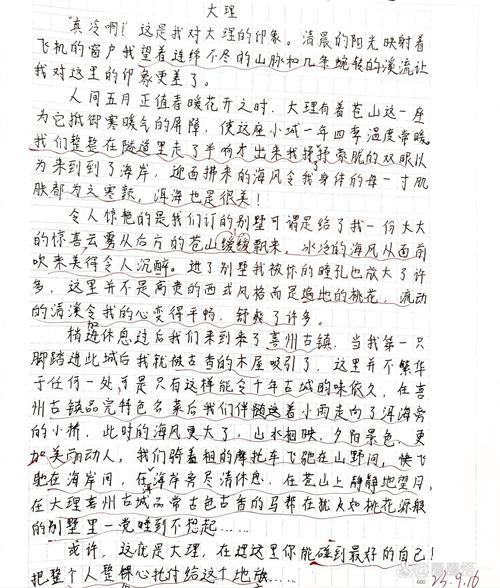 大理
“真冷啊！这是我对大理的印象。清晨的阳光映射着
飞机的窗户我望着连绵不尽的山脉和几条蜿蜒的溪流让
我对这里的印象更差了。
人间五月正值春暖花开之时，大理有着苍山这一座
为它抵御寒暖气的屏障，使这座小城一年四季温度常暖。
我们整整在隧道里走了半晌才出来我抒抒索胧的双眼以
为来到到了海岸，迎面拂来的海风令我身体的每一寸肌
肤都为之寒颤，洱海也是很美！
令人惊艳的是我们订的别墅可谓是给了我一份大大
的惊喜云雾从后片的苍山缓缓飘来，冰冷的海风从面前
吹来美得令人沉醉。进了别墅我被你的瞳孔也放大了许
多，这里并不是高贵的西式风格而是遍地的桃花，流动
的清溪令我的心变得平畅，舒爽了许多。
稍进休息过后我们来到来了喜州古镇，当我第一只
脚踏进此城后我就被古香的木屋吸引了，这里并不繁华
于任何一处，可是只有这样能令千年古城韵味依久，在喜
州古镇品完特色名菜后我们伴随这着小雨走向了洱海旁
的小桥，此时的海风更大了，山水相映，夕阳景色，更
加美动动人，我们骑着租的摩托车飞驰在山野间，快飞
驰在海岸间，在洱海旁尽清休息，在苍山上静静地望月，
在大理喜州古城品尝古色古香的马帮在犹太如桃花源般
的别墅里一觉睡到不想起……
或许，这底是大理，在理这里你能碰到最好的自己！
把整个人整棵心托付给这个地放……
23.9.16